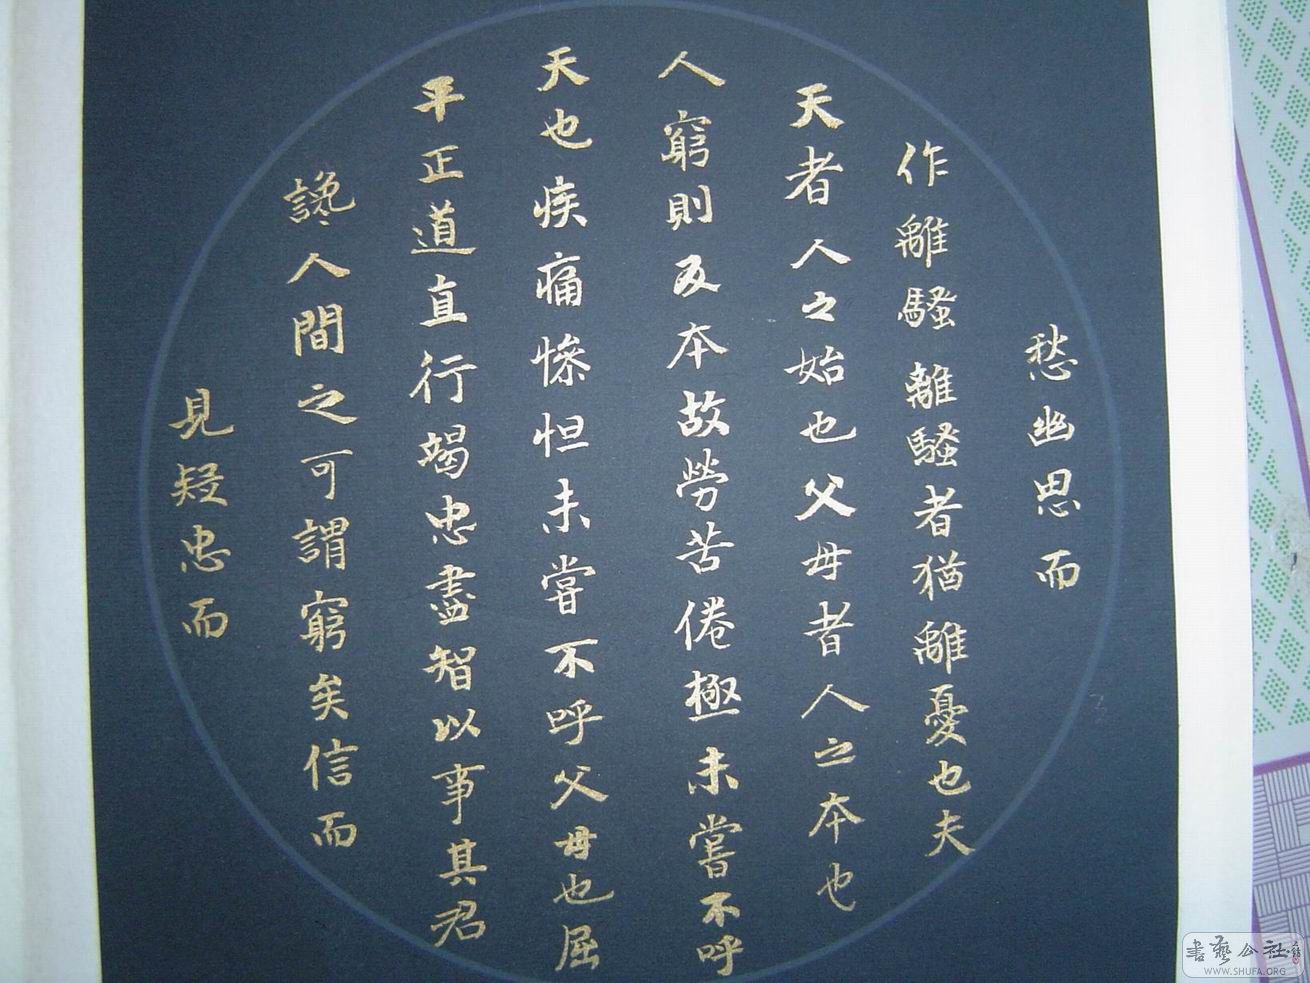 愁幽思而
作離騷離騷者猶離憂也夫
天者人之始也父母者人之本也
人窮則反本故勞苦倦極未嘗不呼
天也疾痛慘怛未嘗不呼父母也屈
平正道直行竭忠盡智以事其君
讒人間之可謂窮矣信而
見疑忠而
書藝公社
WWW.SHUFA.ORG